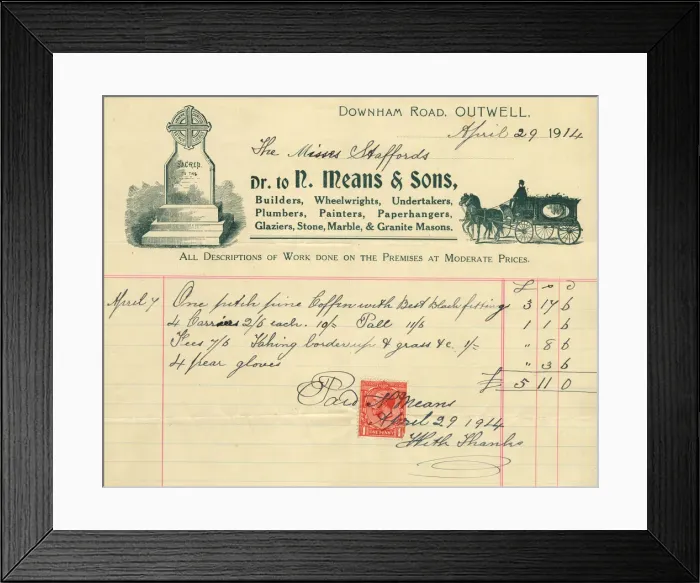 DOWNHAM ROAD, OUTWELL,
April 29 1914
The Misses Staffords
Dr. to N. Means & Sons,
Builders, Wheelwrights, Undertakers,
Plumbers, Painters, Paperhangers,
Glaziers, Stone, Marble, & Granite Masons.
SACRED
TO THE
ALL DESCRIPTIONS OF WORK DONE ON THE PREMISES AT MODERATE PRICES.
£ s D
April 7 One pitch pine Coffin with Best black fitting 3 17 6
4 Carriers 2/6 each. 10/- Pall 11/6 1 1 6
Fees 7/6 Taking border up & grass &c. 1/- " 8 6
4 pear gloves " 3 6
£ 5 11 0
Paid N Means
April 29 1914
With Thanks